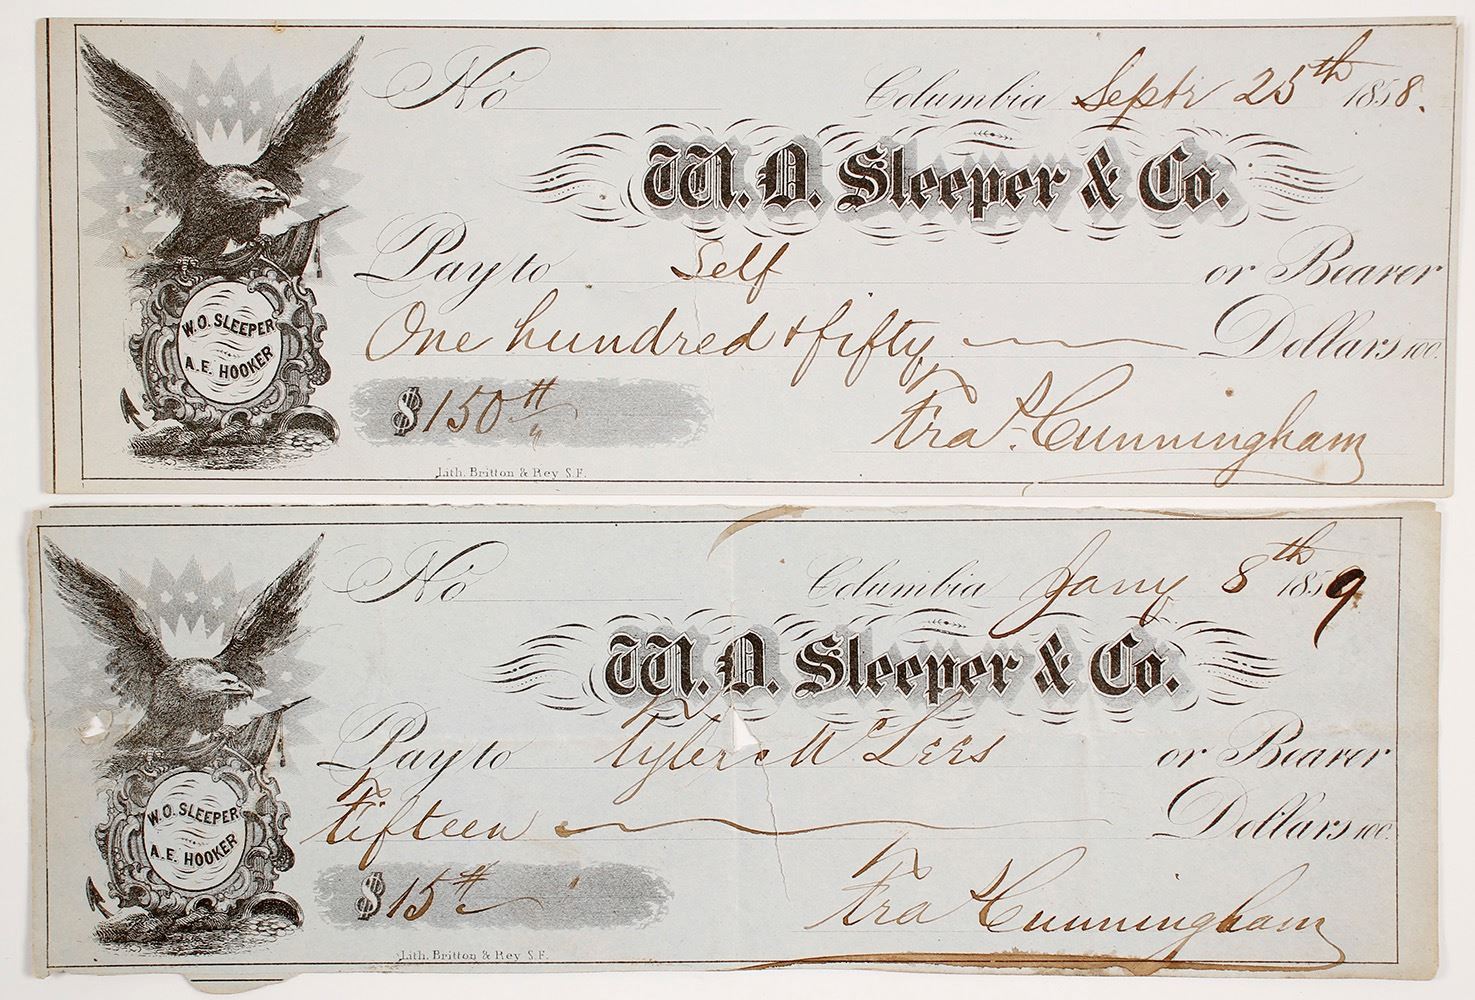 No Columbia Septr 25th 1858.
W. O. Sleeper & Co.
Pay to Self or Bearer
One hundred & fifty Dollars 100
W.O. SLEEPER
A.E. HOOKER
$150 Fra Cunningham
Lith. Britton & Rey S.F.
No Columbia Jany 8th 1859
W. O. Sleeper & Co.
Pay to Tyler McLees or Bearer
Fifteen Dollars 100
W.O. SLEEPER
A.E. HOOKER
$15 Fra Cunningham
Lith. Britton & Rey S.F.